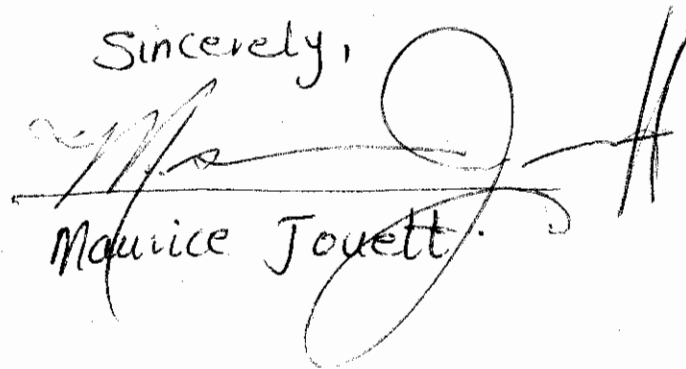 Sincerely,
Maurice Jouett.